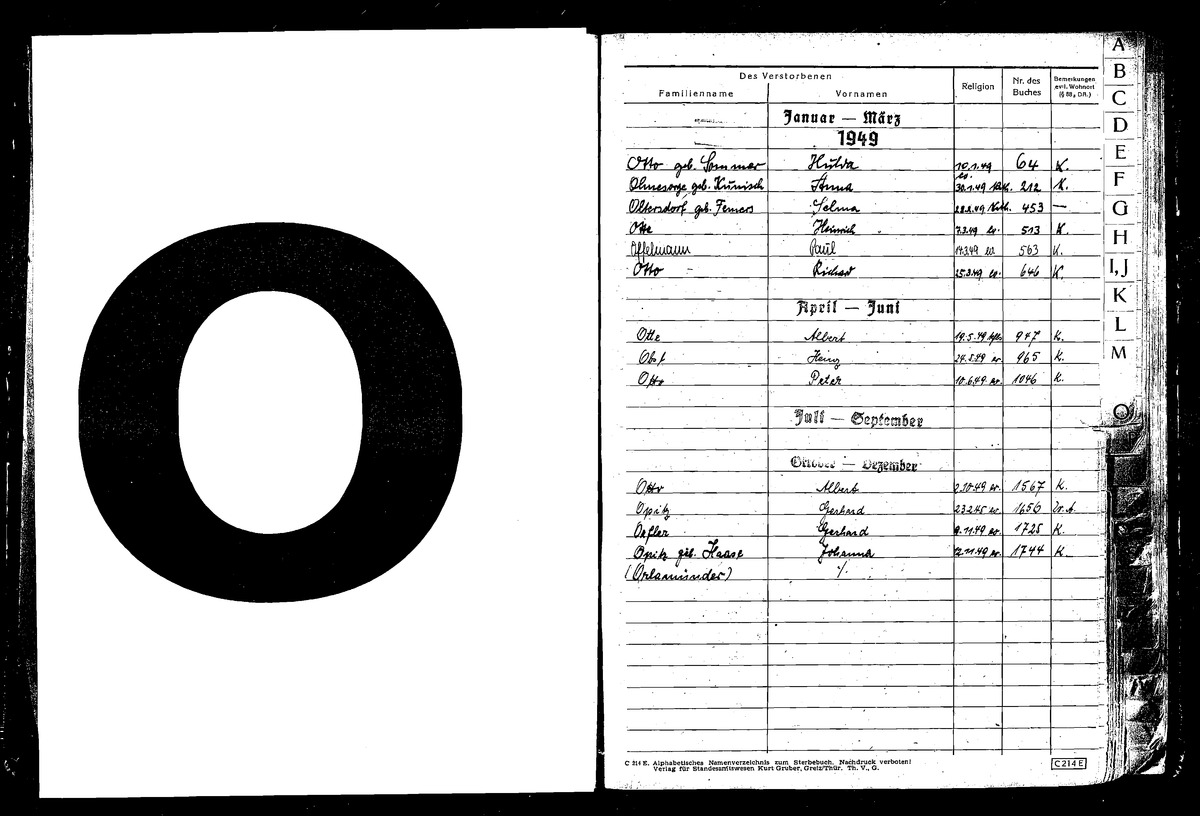 O
Des Verstorbenen
Familienname Vornamen Religion Nr. des Buches Bemerkungen evtl. Wohnort
Januar — März
1949
Otto geb. Sommer Hulda 10.1.49 64 K.
ev.
Ohnesorge geb. Kunisch Anna 30.1.49 Kath. 212 K.
Oltersdorf geb. Femers Selma 28.2.49 Kath. 453 —
Otte Heinrich 7.3.49 ev. 513 K.
Offelmann Paul 14.3.49 ev. 563 K.
Otto Richard 25.3.49 ev. 646 K
April — Juni
Otte Albert 19.5.49 947 K.
Obst Heinz 24.5.49 ev. 965 K.
Otto Peter 10.6.49 ev. 1046 K.
Juli — September
Oktober — Dezember
Otto Albert 2.10.49 ev. 1567 K.
Opitz Gerhard 23.2.45 ev. 1656
Oefler Gerhard 9.11.49 ev. 1725 K.
Opitz geb. Haase Johanna 12.11.49 ev. 1744 K
(Orlamünder) %
C 214 E. Alphabetisches Namenverzeichnis zum Sterbebuch. Nachdruck verboten!
Verlag für Standesamtswesen Kurt Gruber, Greiz/Thür. Th. V., G.
C 214 E
A
B
C
D
E
F
G
H
I, J
K
L
M
O